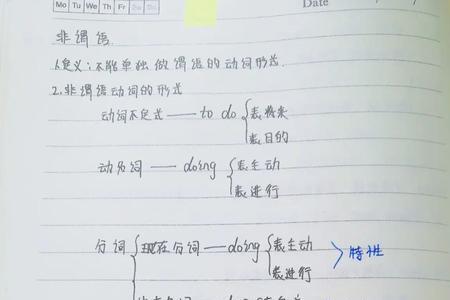 Mo Tu We Th Fr Sa Su
Date
非谓语.
1.定义:不能单独做谓语的动词形式.
2.非谓语动词的形式
动词不定式——to do
表将来
表目的
动名词——doing
表主动
表进行
分词
现在分词——doing
表主动
表进行
特性